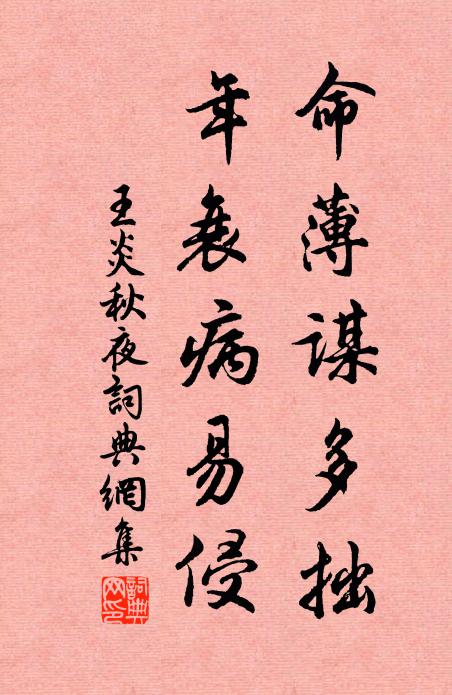 命薄謀多拙
年衰病易侵
王炎秋夜詞典網集
詞典網印